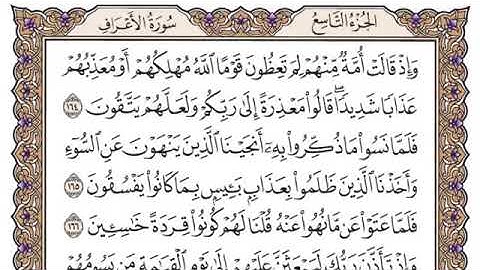 سُورَةُ الأَعْرَافِ الجُزْءُ التَّاسِعُ
وَإِذْ قَالَتْ أُمَّةٌ مِّنْهُمْ لِمَ تَعِظُونَ قَوْمًا اللَّهُ مُهْلِكُهُمْ أَوْ مُعَذِّبُهُمْ
عَذَابًا شَدِيدًا ۖ قَالُوا۟ مَعْذِرَةً إِلَىٰ رَبِّكُمْ وَلَعَلَّهُمْ يَتَّقُونَ ١٦٤
فَلَمَّا نَسُوا۟ مَا ذُكِّرُوا۟ بِهِۦٓ أَنجَيْنَا الَّذِينَ يَنْهَوْنَ عَنِ السُّوٓءِ
وَأَخَذْنَا الَّذِينَ ظَلَمُوا۟ بِعَذَابٍۭ بَـِٔيسٍۭ بِمَا كَانُوا۟ يَفْسُقُونَ ١٦٥
فَلَمَّا عَتَوْا۟ عَن مَّا نُهُوا۟ عَنْهُ قُلْنَا لَهُمْ كُونُوا۟ قِرَدَةً خَٰسِـِٔينَ ١٦٦
وَإِذْ تَأَذَّنَ رَبُّكَ لَيَبْعَثَنَّ عَلَيْهِمْ إِلَىٰ يَوْمِ الْقِيَٰمَةِ مَن يَسُومُهُمْ